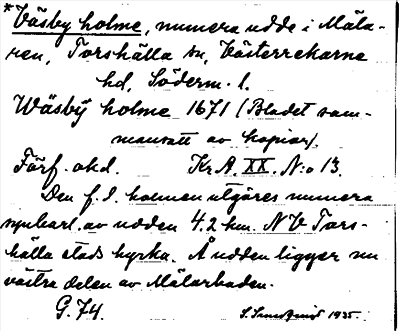 *Väsby holme, numera udde i Mäla-
ren, Torshälla sn, Västerrekarne
hd, Söderm. l.
Wäsbÿ holme 1671 (Bladet sam-
mansatt av kopior).
Förf. okd. Kr.A. XX. N:o 13.
Den f. d. holmen utgöres numera
synbart av udden 4.2 km. NV Tors-
hälla stads kyrka. Å udden ligger nu
västra delen av Mälarbaden.
G. 74. S. Sundqvist 1935.